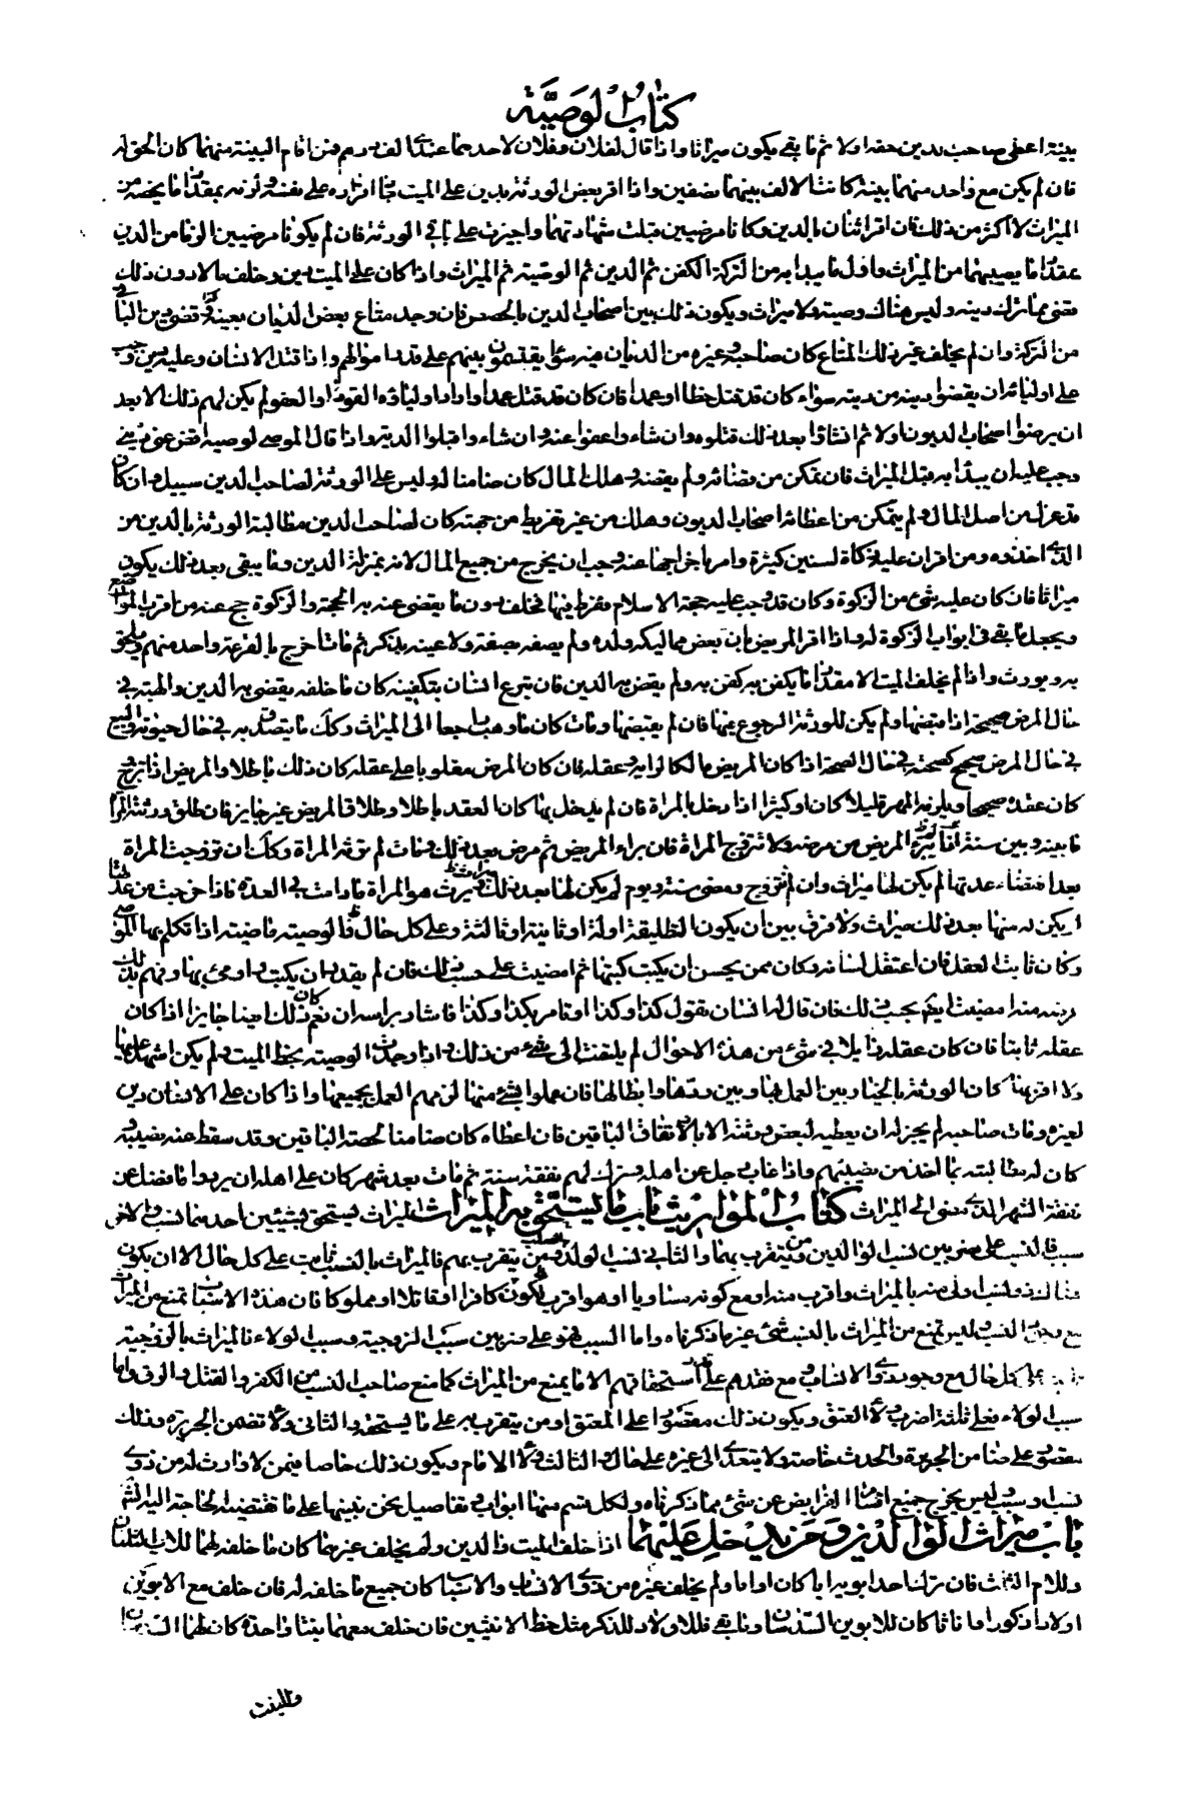 كتاب الوصية
بينة اعطى صاحب الدين حقه اولا ثم ما بقي يكون ميراثا واذا قال لفلان وفلان لاحدهما عندي الف درهم فمن اقام البينة منهما كان الحق له
فان لم يكن مع واحد منهما بينة كانت الالف بينهما نصفين واذا اقر بعض الورثة بدين على الميت جاز اقراره على نفسه ولزمه بمقدار ما يخصه من
الميراث لا اكثر من ذلك فان اقر اثنان بالدين وكانا مرضيين قبلت شهادتهما واجيزت على باقي الورثة فان لم يكونا مرضيين الزما من الدين
بمقدار ما يصيبهما من الميراث واول ما يبدا به من التركة الكفن ثم الدين ثم الوصية ثم الميراث واذا كان على الميت دين وخلف مالا دون ذلك
قضي بما ترك دينه وليس هناك وصية ولا ميراث ويكون ذلك بين اصحاب الدين بالحصص فان وجد متاع بعض الديان بعينه وكان فيما بقي من
من التركة وان لم يخلف غير ذلك المتاع كان صاحبه وغيره من الديان فيه سواء يقتسمون بينهم على قدر اموالهم واذا قتل الانسان وعليه دين وجب
على اوليائه ان يقضوا دينه من ديته سواء كان قد قتل خطا او عمدا فان كان قد قتل عمدا وارادوا اولياؤه القود او العفو لم يكن لهم ذلك الا بعد
ان يرضوا اصحاب الديون اولا ثم ان شاؤا بعد ذلك قتلوه وان شاءوا عفوا عنه وان شاءوا قبلوا الدية واذا قال الموصي لوصيه اقض عني ديني
وجب عليه ان يبدا به قبل الميراث فان تمكن من قضائه ولم يقضه وهلك المال كان ضامنا له وليس على الورثة لصاحب الدين سبيل وان كان
قد عزله من اصل المال ولم يتمكن من اعطائه اصحاب الديون وهلك من غير تفريط من جهته كان لصاحب الدين مطالبة الورثة بالدين من
الذي اخذوه ومن اقر ان عليه زكاة لسنين كثيرة وامر باخراجها عنه وجب ان يخرج من جميع المال لانه بمنزلة الدين وما يبقى بعد ذلك يكون
ميراثا فان كان عليه شيء من الزكوة وكان قد وجب عليه حجة الاسلام ففرط فيها فخلف دون ما يقضى عنه به الحجة والزكوة حج عنه من اقرب المواضع
ويجعل ما بقي في ابواب الزكوة له واذا اقر المريض بان بعض مماليكه ولده ولم يصفه بصفة ولا عينه بذكر ثم مات اخرج بالقرعة واحد منهم ويلحق
به ويورث واذا لم يخلف الميت الا مقدار ما يكفن به كفن به ولم يقض به الدين فان تبرع انسان بتكفينه كان ما خلفه يقضى به الدين والهبة في
حال المرض صحيحة اذا قبضها ولم يكن للورثة الرجوع فيها فان لم يقبضها ومات كان ما وهب راجعا الى الميراث وكذلك ما يتصدق به في حال حيوته والبيع
في حال المرض صحيح كصحته في حال الصحة اذا كان المريض مالكا لرايه وعقله فان كان المرض مغلوبا على عقله كان ذلك باطلا والمريض اذا تزوج
كان عقده صحيحا ويلزمه المهر قليلا كان او كثيرا اذا دخل بالمراة فان لم يدخل بها كان العقد باطلا وطلاق المريض غير جايز فان طلق ورثته المراة
ما بينه وبين سنة اذا لم يبرء المريض من مرضه ولا تتزوج المراة فان براء المريض ثم مرض بعد ذلك ومات لم ترثه المراة وكذلك ان تزوجت المراة
بعد انقضاء عدتها لم يكن لها ميراث وان لم تتزوج ومضى سنة ويوم لم يكن لها بعد ذلك ميراث ويرث هو المراة ما دامت في العدة فاذا خرجت من عدتها
لم يكن له منها بعد ذلك ميراث ولا فرق بين ان يكون التطليقة اولة او ثانية او ثالثة وعلى كل حال فالوصية ماضية اذا تكلم بها الموصي
وكان ثابت العقل فان اعتقل لسانه وكان ممن يحسن ان يكتب كتبها ثم امضيت على حسب ذلك فان لم يقدر ان يكتب واومى بها وفهم بذلك
عقله ثابتا فان كان عقله زايلا في شيء من هذه الاحوال لم يلتفت الى شيء من ذلك واذا وجدت الوصية بخط الميت ولم يكن اشهد عليها
ولا اقر بها كان الورثة بالخيار بين العمل بها وبين ردها وابطالها فان عملوا بشيء منها لزمهم العمل بجميعها واذا كان على الانسان دين
لغيره ومات صاحبه لم يجز له ان يعطيه لبعض ورثته الا بالاتفاق الباقين فان اعطاه كان ضامنا لحصة الباقين وقد سقط عنه نصيبه و
كان له مطالبته بما اخذ من نصيبهم واذا غاب رجل عن اهله وترك لهم نفقة سنة ثم مات بعد شهر كان على اهله ان يردوا ما فضل عن
نفقة الشهر الذي مضى الى الميراث كتاب المواريث باب ما يستحق به الميراث الميراث يستحق بشيئين احدهما نسب والاخر
سبب فالنسب على ضربين نسب الوالدين ومن يتقرب بهما والثاني نسب الولد للصلب ومن يتقرب بهم فالميراث بالنسب ثابت على كل حال الا ان يكون
هناك ذو نسب اولى منه بالميراث واقرب منه او مع كونه مساويا او هو اقرب يكون كافرا او قاتلا او مملوكا فان هذه الاسباب تمنع من الميراث
مع وجود النسب وليس تمنع من الميراث بالنسب شيء غير ما ذكرناه واما السبب فهو على ضربين سبب الزوجية وسبب الولاء فالميراث بالزوجية
على كل حال مع وجود ذوي الانساب ومع فقدهم على استحقاقهم الا ما يمنع من الميراث كما منع صاحب النسب من الكفر والقتل والرق واما
سبب الولاء فعلى ثلثة اضرب ولاء العتق ويكون ذلك مقصورا على المعتق او من يتقرب به على ما يستحقه والثاني ولاء تضمن الجريرة وذلك
مقصور على ضامن الجريرة والحدث خاصة ولا يتعدى الى غيره على حال والثالث ولاء الامام ويكون ذلك خاصا فيمن لا وارث له من ذوي
نسب وسبب وليس يخرج جميع اقسام الفرايض عن شيء مما ذكرناه ولكل قسم منها ابواب وتفاصيل نحن نبينها على ما تقتضيه الحاجة اليه انشاء
باب ميراث الوالدين ومن يدخل عليهما اذا خلف الميت والدين ولم يخلف غيرهما كان ما خلفه لهما للاب الثلثان
وللام الثلث فان ترك احد ابويه ايا كان او اما ولم يخلف غيره من ذوي الانساب والاسباب كان جميع ما خلفه له فان خلف مع الابوين
اولادا ذكورا او اناثا كان للابوين السدسان وما بقي فللاولاد للذكر مثل حظ الانثيين فان خلف معهما بنتا واحدة كان لهما السدسان
وللبنت